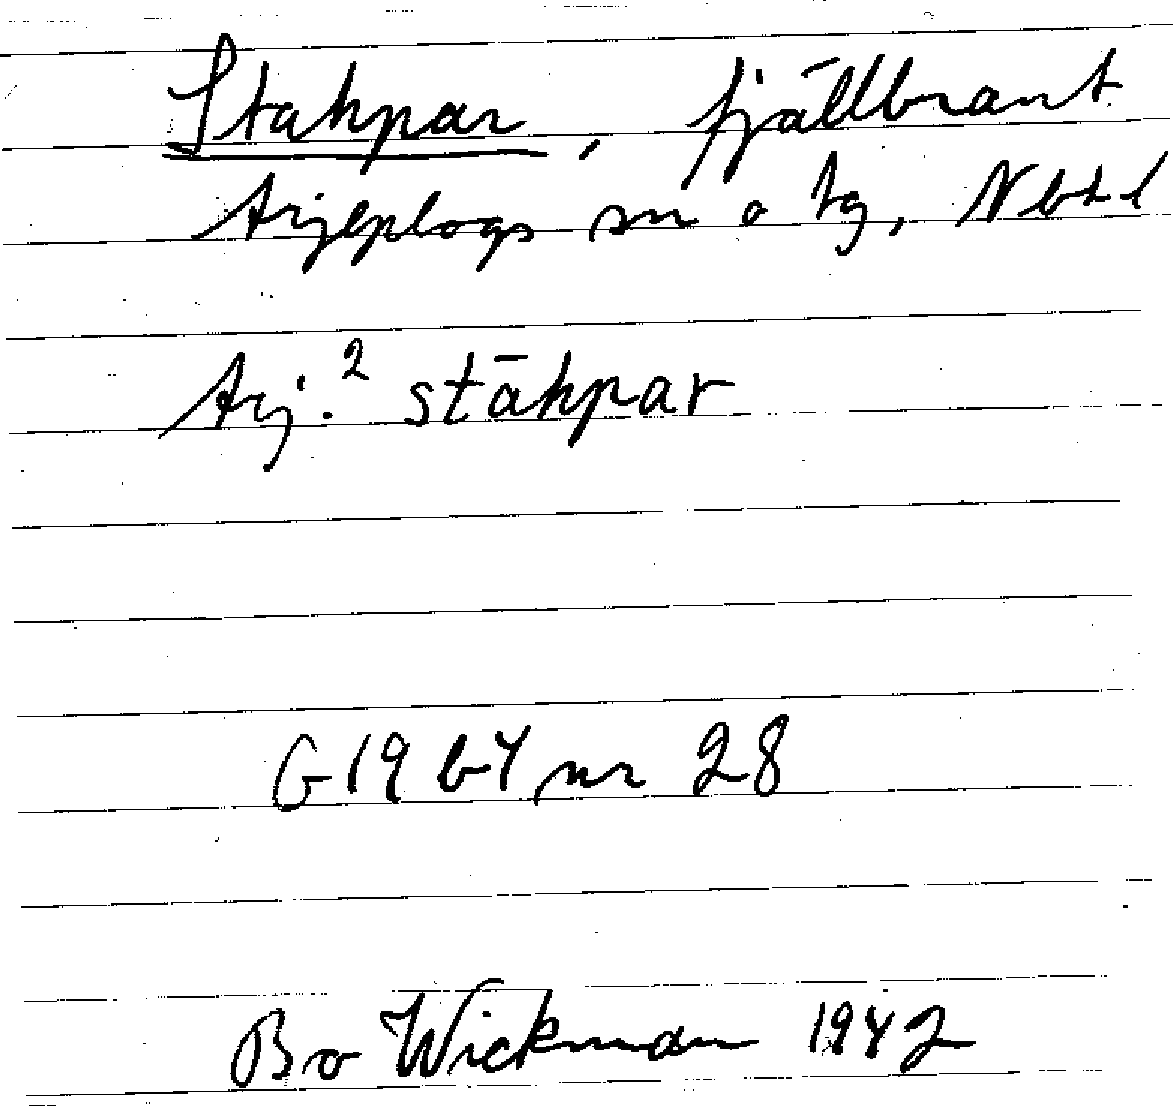 Stahpar, fjällbrant
Arjeplogs sn o tg, Nbtl
Arj.² stāhpar
G19 b4 nr 28
Bo Wickman 1942